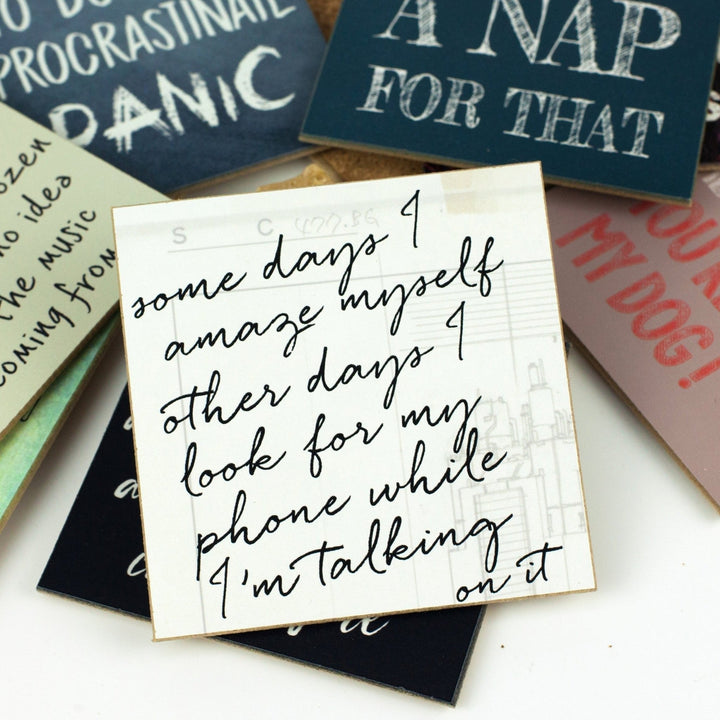 TO DO
PROCRASTINATE
PANIC
A NAP
FOR THAT
no idea
the music
coming from
MY DOG!
S C 477.86
some days I
amaze myself
other days I
look for my
phone while
I'm talking
on it